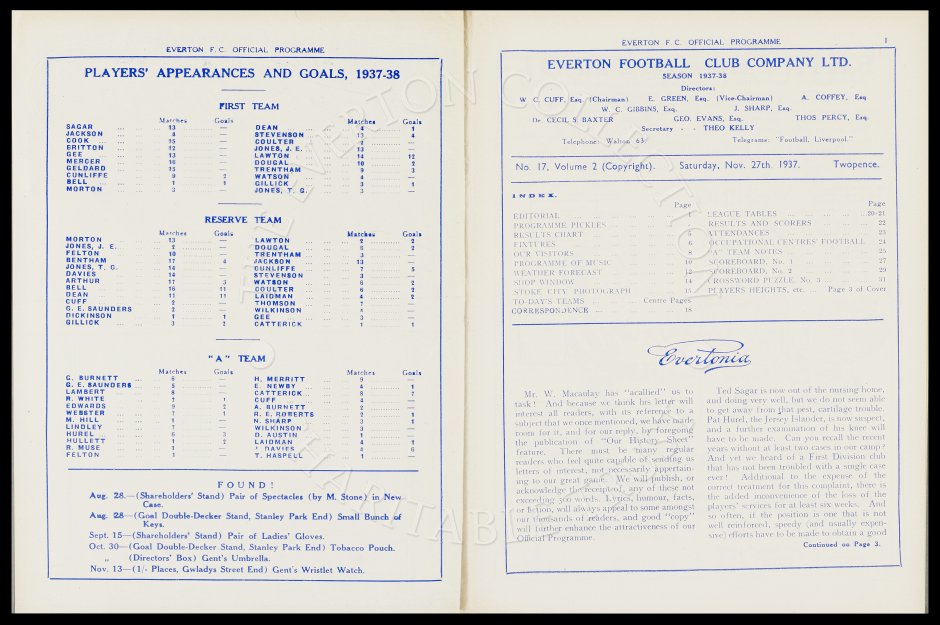 EVERTON F.C. OFFICIAL PROGRAMME
PLAYERS' APPEARANCES AND GOALS, 1937-38
FIRST TEAM
Matches Goals
SAGAR ... 13 —
JACKSON ... 4 —
COOK ... 15 —
BRITTON ... 12 —
GEE ... 13 —
MERCER ... 16 —
GELDARD ... 15 —
CUNLIFFE ... 9 2
BELL ... 1 1
MORTON ... 3 —
Matches Goals
DEAN ... 4 1
STEVENSON ... 13 4
COULTER ... 2 —
JONES, J. E. ... 13 —
LAWTON ... 14 12
DOUGAL ... 10 2
TRENTHAM ... 9 3
WATSON ... 4 —
GILLICK ... 3 1
JONES, T. G. ... 3 —
RESERVE TEAM
Matches Goals
MORTON ... 13 —
JONES, J. E. ... 2 —
FELTON ... 10 —
BENTHAM ... 17 4
JONES, T. G. ... 14 —
DAVIES ... 14 —
ARTHUR ... 17 3
BELL ... 16 11
DEAN ... 11 11
CUFF ... 2 —
G. E. SAUNDERS ... 2 —
DICKINSON ... 1 1
GILLICK ... 3 2
Matches Goals
LAWTON ... 2 2
DOUGAL ... 6 2
TRENTHAM ... 3 —
JACKSON ... 13 —
CUNLIFFE ... 7 5
STEVENSON ... 3 —
WATSON ... 6 2
COULTER ... 6 2
LAIDMAN ... 4 2
THOMSON —
WILKINSON —
GEE ... 3 —
CATTERICK ... 1 1
"A" TEAM
Matches Goals
G. BURNETT ... 6 —
G. E. SAUNDERS ... 5 —
LAMBERT ... 8 —
R. WHITE ... 7 1
EDWARDS ... 9 2
WEBSTER ... 7 1
M. HILL ... 1 —
LINDLEY ... 7 —
HUREL ... 6 3
HULLETT ... 1 —
R. MUSE ... 1 —
FELTON ... 1 —
Matches Goals
H. MERRITT ... 9 —
E. NEWBY 1
CATTERICK ... 8 7
CUFF ... 4 —
A. BURNETT ... 2 —
R. E. ROBERTS 1
N. SHARP ... 3 1
WILKINSON —
D. AUSTIN ... 1 —
LAIDMAN ... 2 1
J. DAVIES ... 4 6
T. HASPELL ... 1 —
FOUND!
Aug. 28.—(Shareholders' Stand) Pair of Spectacles (by M. Stone) in New
Case.
Aug. 28—(Goal Double-Decker Stand, Stanley Park End) Small Bunch of
Keys.
Sept. 15—(Shareholders' Stand) Pair of Ladies' Gloves.
Oct. 30—(Goal Double-Decker Stand, Stanley Park End) Tobacco Pouch.
„ (Directors' Box) Gent's Umbrella.
Nov. 13—(1/- Places, Gwladys Street End) Gent's Wristlet Watch.
EVERTON F.C. OFFICIAL PROGRAMME 1
EVERTON FOOTBALL CLUB COMPANY LTD.
SEASON 1937-38
Directors:
W. C. CUFF, Esq. (Chairman) E. GREEN, Esq. (Vice-Chairman) A. COFFEY, Esq
W. C. GIBBINS, Esq. J. SHARP, Esq.
Dr. CECIL S. BAXTER GEO. EVANS, Esq. THOS PERCY, Esq.
Secretary - - THEO KELLY
Telephone: Walton 63 Telegrams: "Football, Liverpool."
No. 17, Volume 2 (Copyright). Saturday, Nov. 27th 1937. Twopence.
INDEX.
Page
EDITORIAL 1
PROGRAMME PICKLES
RESULTS CHART 5
FIXTURES 6
OUR VISITORS 8
PROGRAMME OF MUSIC 10
WEATHER FORECAST 12
SHOP WINDOW 14
STOKE CITY PHOTOGRAPH 15
TO-DAY'S TEAMS ... Centre Pages
CORRESPONDENCE ... 18
Page
LEAGUE TABLES ... 20-21
RESULTS AND SCORERS 22
ATTENDANCES 23
OCCUPATIONAL CENTRES' FOOTBALL 24
"A" TEAM NOTES 25
SCOREBOARD, No. 1 27
SCOREBOARD, No. 2 29
CROSSWORD PUZZLE, No. 3 31
PLAYERS HEIGHTS, etc. ... Page 3 of Cover
Evertonia
Mr. W. Macaulay has "acallied" us to
task! And because we think his letter will
interest all readers, with its reference to a
subject that we once mentioned, we have made
room for it, and for our reply, by foregoing
the publication of "Our History Sheet"
feature. There must be many regular
readers who feel quite capable of sending us
letters of interest, not necessarily appertain-
ing to our great game. We will publish, or
acknowledge the receipt of, any of these not
exceeding 500 words. Lyrics, humour, facts,
or fiction, will always appeal to some amongst
our thousands of readers, and good "copy"
will further enhance the attractiveness of our
Official Programme.
Ted Sagar is now out of the nursing home,
and doing very well, but we do not seem able
to get away from that pest, cartilage trouble.
Pat Hurel, the Jersey Islander, is now suspect,
and a further examination of his knee will
have to be made. Can you recall the recent
years without at least two cases in our camp?
And yet we heard of a First Division club
that has not been troubled with a single case
ever! Additional to the expense of the
correct treatment for this complaint, there is
the added inconvenience of the loss of the
players' services for at least six weeks. And
so often, if the position is one that is not
well reinforced, speedy (and usually expen-
sive) efforts have to be made to obtain a good
Continued on Page 3.
THE EVERTON COLLECTION CHARITABLE